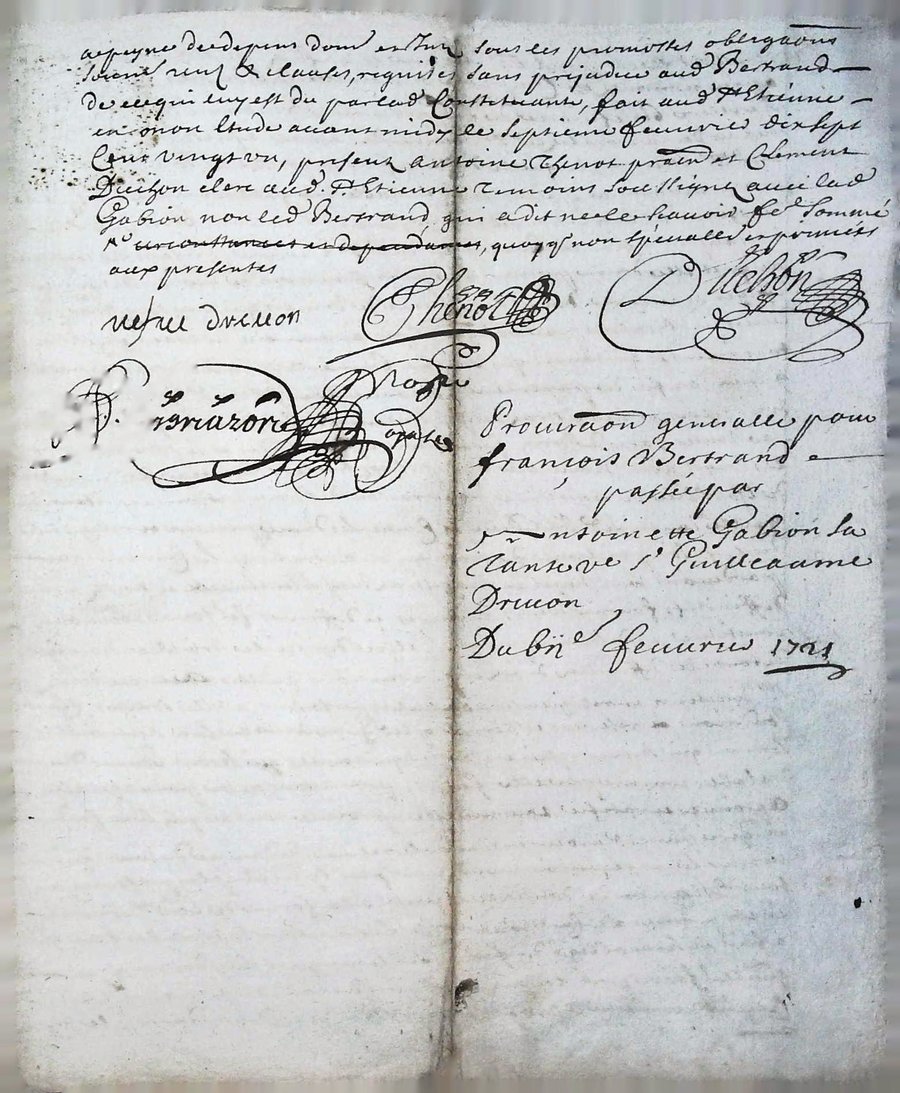 a peyne de depens dom͠ et Int sous les promesses obligaons
soumi renon & clauses, requises sans prejudice aud Bertrand
de ce qui luy est du par lad Constituante, fait aud St Etienne
en mon Etude avant midy le septieme feuvrier dix sept
Cent vingt un, present antoine Thenot praen et Clement
Duchon clerc aud. St Etienne temoins soussignez avec lad
Gabion non led Bertrand, qui a dit ne le scavoir fe sommé
circonstances et dependances, quoyq non speciallet exprimées
aux presentes
vefue dreuon
Thenot
Duchon
Procuraon generalle pour
françois Bertrand
passée par
antoinette Gabion sa
Tante ve sr Guilleaume
Dreuon
Du bije feuvrier 1721